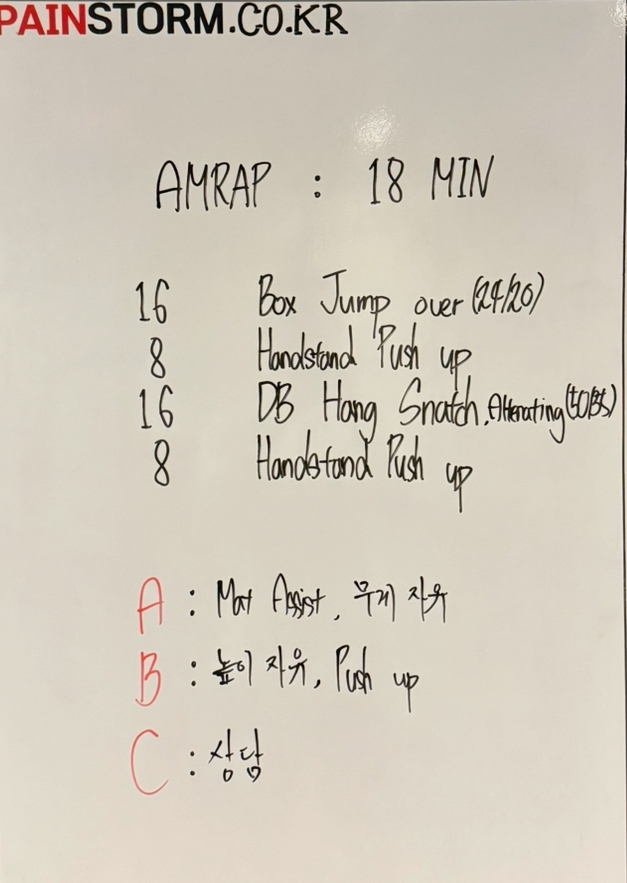 PAINSTORM.CO.KR
AMRAP : 18 MIN
16 Box Jump over (24/20)
8 Handstand Push up
16 DB Hang Snatch, Alterating
8 Handstand Push up
A : Mat Assist, 무게 자유
B : 높이 자유, Push up
C : 상담